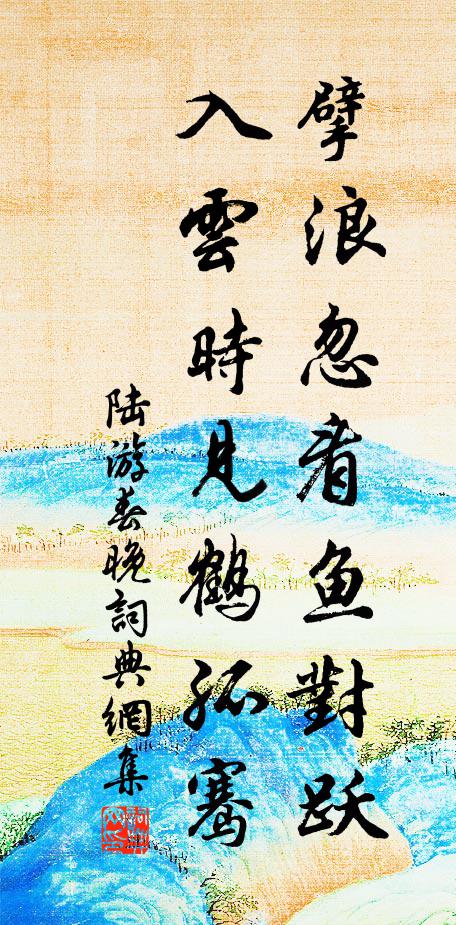 擘浪忽看魚對跃
入雲時見鶴孤騫
陆游春晚詞典網集